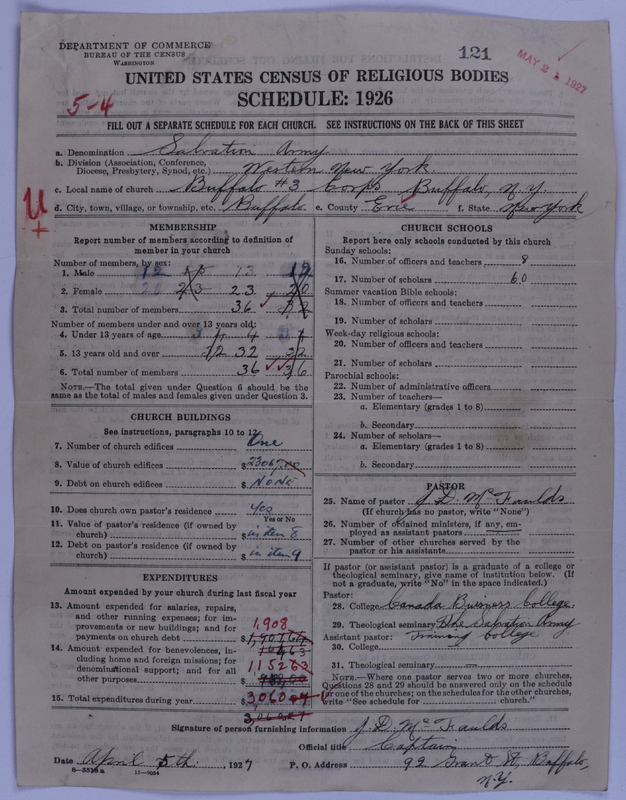 DEPARTMENT OF COMMERCE
BUREAU OF THE CENSUS
WASHINGTON
121
MAY 2 1927
UNITED STATES CENSUS OF RELIGIOUS BODIES
SCHEDULE: 1926
5-4
FILL OUT A SEPARATE SCHEDULE FOR EACH CHURCH. SEE INSTRUCTIONS ON THE BACK OF THIS SHEET
a. Denomination Salvation Army
b. Division (Association, Conference, Diocese, Presbytery, Synod, etc.) Western New York.
c. Local name of church Buffalo #3 Corps Buffalo, N.Y.
d. City, town, village, or township, etc. Buffalo e. County Erie f. State New York
MEMBERSHIP
Report number of members according to definition of member in your church
Number of members, by sex:
1. Male 12 15 13 12
2. Female 20 23 23 20
3. Total number of members 36 32
Number of members under and over 13 years old:
4. Under 13 years of age 4 4
5. 13 years old and over 12 32 32
6. Total number of members 36 36
NOTE.—The total given under Question 6 should be the same as the total of males and females given under Question 3.
CHURCH BUILDINGS
See instructions, paragraphs 10 to 12
7. Number of church edifices One
8. Value of church edifices $23067.00
9. Debt on church edifices $NONE
10. Does church own pastor's residence? Yes
Yes or No
11. Value of pastor's residence (if owned by church) $in item 8
12. Debt on pastor's residence (if owned by church) $in item 9
EXPENDITURES
Amount expended by your church during last fiscal year
13. Amount expended for salaries, repairs, and other running expenses; for improvements or new buildings; and for payments on church debt $ 1,908
14. Amount expended for benevolences, including home and foreign missions; for denominational support; and for all other purposes $ 1152
15. Total expenditures during year $3,060
CHURCH SCHOOLS
Report here only schools conducted by this church
Sunday schools:
16. Number of officers and teachers 8
17. Number of scholars 60
Summer vacation Bible schools:
18. Number of officers and teachers
19. Number of scholars
Week-day religious schools:
20. Number of officers and teachers
21. Number of scholars
Parochial schools:
22. Number of administrative officers
23. Number of teachers—
a. Elementary (grades 1 to 8)
b. Secondary
24. Number of scholars—
a. Elementary (grades 1 to 8)
b. Secondary
PASTOR
25. Name of pastor J. D. McFaulds
(If church has no pastor, write "None")
26. Number of ordained ministers, if any, employed as assistant pastors
27. Number of other churches served by the pastor or his assistants
If pastor (or assistant pastor) is a graduate of a college or theological seminary, give name of institution below. (If not a graduate, write "No" in the space indicated.)
Pastor:
28. College Canada Business College.
29. Theological seminary The Salvation Army
Assistant pastor: Training College
30. College
31. Theological seminary —
NOTE.—Where one pastor serves two or more churches, Questions 28 and 29 should be answered only on the schedule for one of the churches; on the schedules for the other churches, write "See schedule for church."
Signature of person furnishing information J. D. McFaulds
Official title Captain
Date April 5th, 1927 P. O. Address 92 Grant St, Buffalo,
N.Y.
8-5518a 11-9064